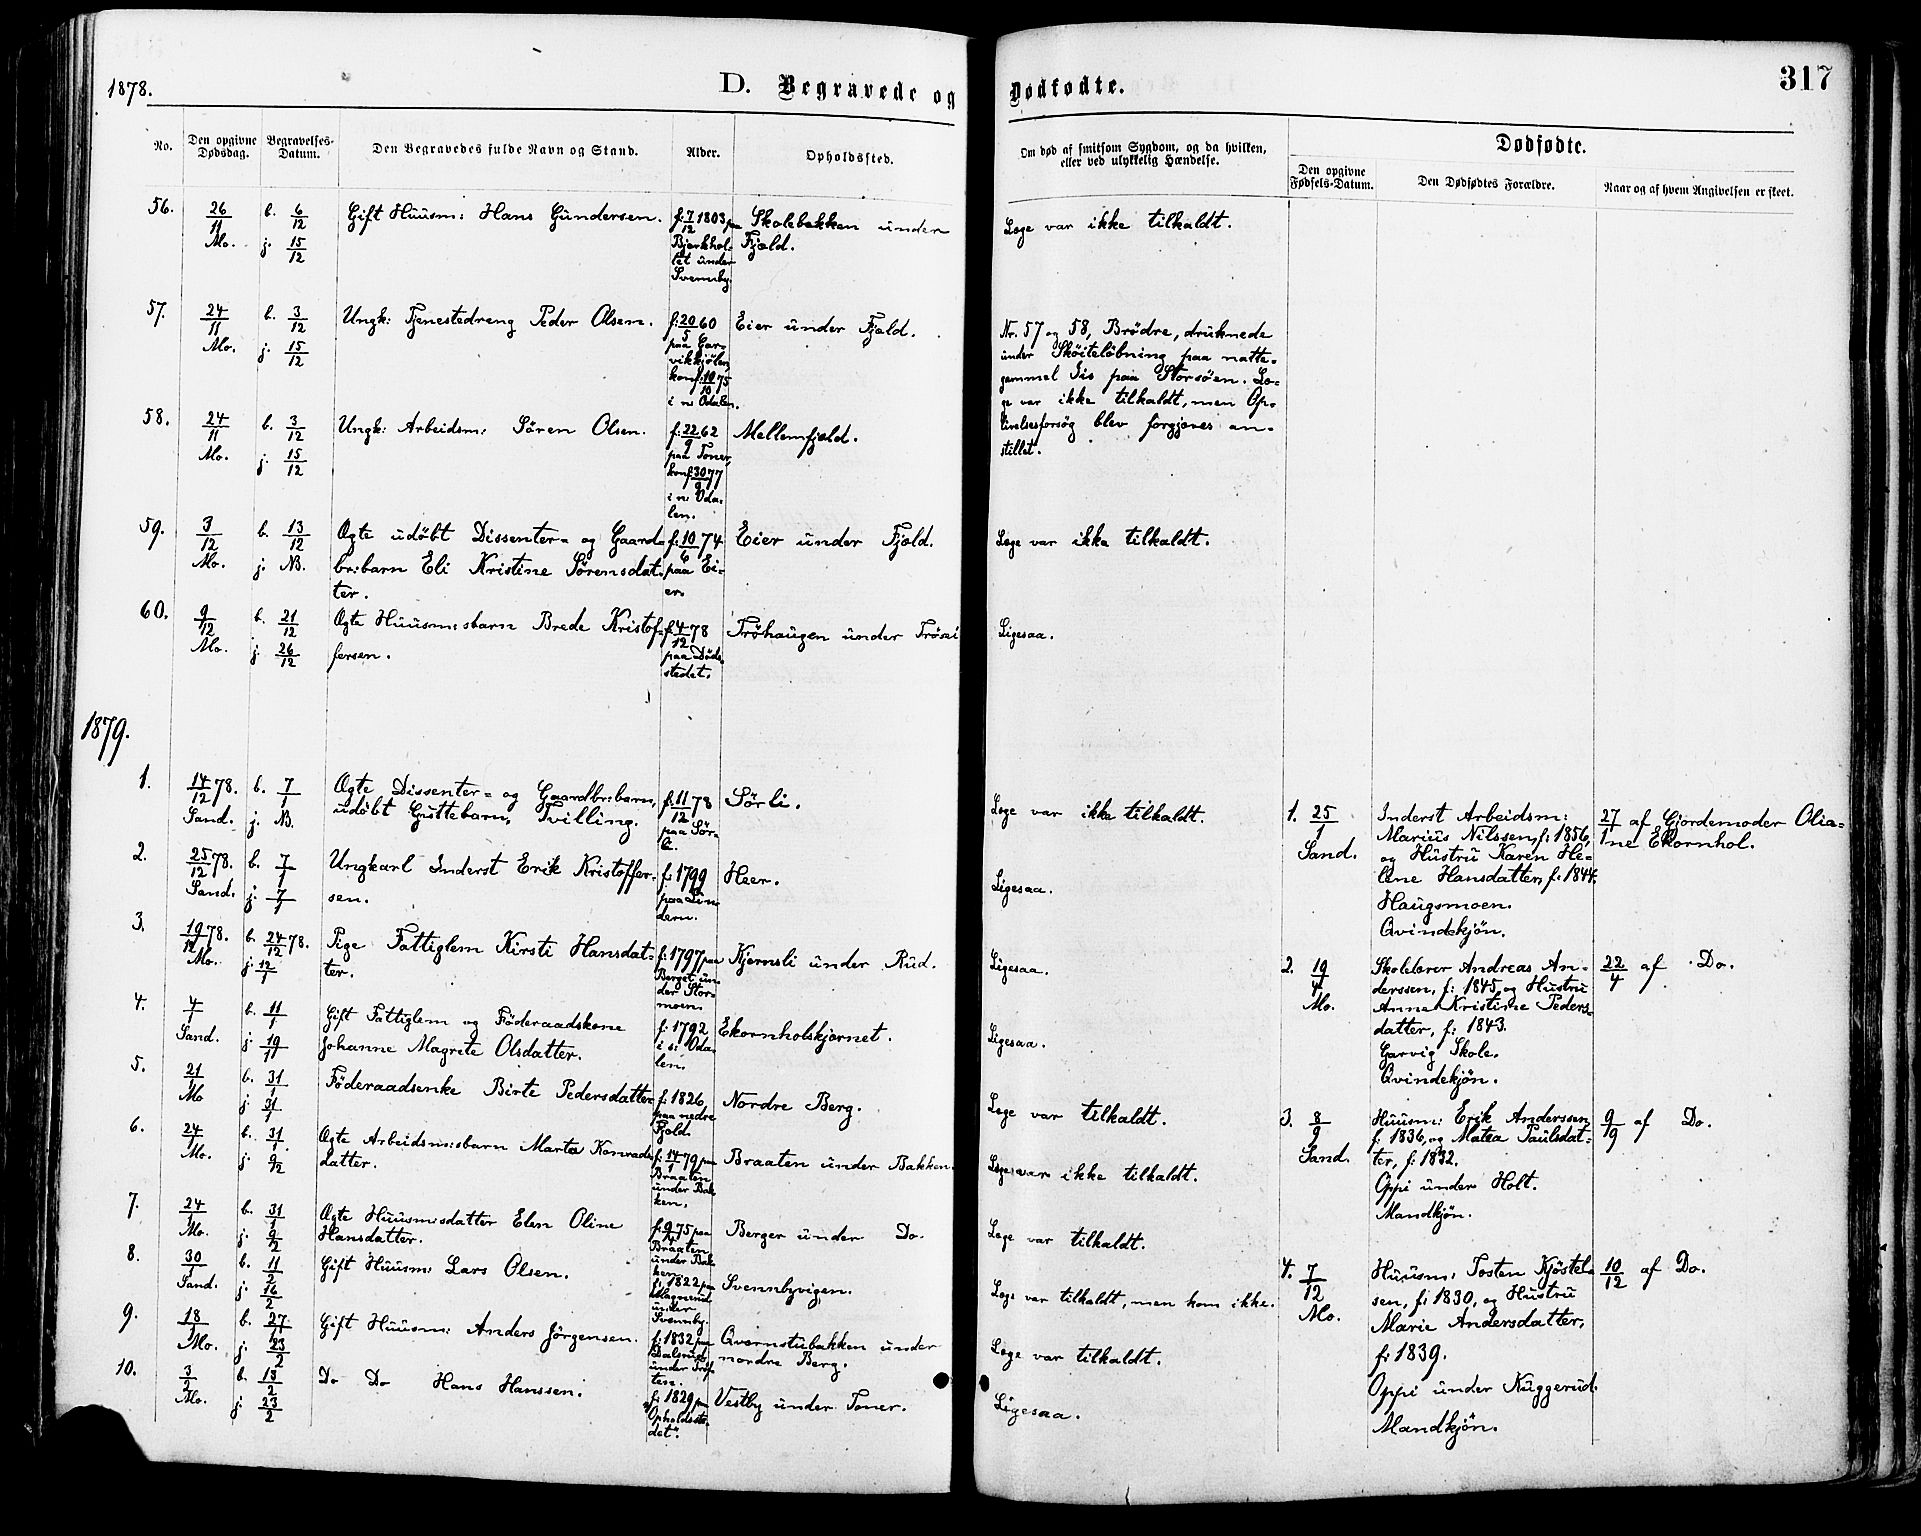 1878.
D. Begravede og Dødfødte.
317
No.
Den opgivne Dødsdag.
Begravelses-Datum.
Den Begravedes fulde Navn og Stand.
Alder.
Opholdssted.
Om død af smitsom Sygdom, og da hvilken,
eller ved ulykkelig Hændelse.
Dødfødte.
Den opgivne Fødsels-Datum.
Den Dødfødtes Forældre.
Naar og af hvem Angivelsen er skeet.
56. 26/11 Mo. b. 6/12 j. 15/12 Gift Huusm: Hans Gundersen. f. 7/12 1803 paa Bjerkholtet under Svennby. Skolebakken under Fjeld. Læge var ikke tilkaldt.
57. 24/11 Mo. b. 3/12 j. 15/12 Ungk: Tjenestedreng Peder Olsen. f. 20/5 60 paa Garvikkjølen, konf. 10/10 75 i n. Odalen. Eier under Fjeld.
Nr. 57 og 58, Brødre, druknede
under Skøiteløbning paa natte-
gammel Is paa Storsøen. Læ-
ge var ikke tilkaldt, men Op-
livelsesforsøg blev forgjæves an-
stillet.
58. 24/11 Mo. b. 3/12 j. 15/12 Ungk: Arbeidsm: Søren Olsen. f. 22/9 62 paa Toner, konf. 30/9 77 i n. Odalen. Mellemfjeld.
59. 3/12 Mo. b. 13/12 j. NB. Ægte udøbt Dissenter- og Gaard-
br:barn Eli Kristine Sørensdat-
ter. f. 10/6 74 paa Eier. Eier under Fjeld. Læge var ikke tilkaldt.
60. 9/12 Mo. b. 21/12 j. 26/12 Ægte Huusm:sbarn Brede Kristof-
fersen. f. 4/12 78 paa Dødsstedet. Trøhaugen under Trøsei Ligesaa.
1879.
1. 14/12 78. Sand. b. 7/1 j. NB. Ægte Dissenter- og Gaardbr:barn,
udøbt Guttebarn, Tvilling. f. 11/12 78 paa Sørli. Sørli. Læge var ikke tilkaldt.
2. 25/12 78. Sand. b. 7/1 j. 7/1 Ungkarl Inderst Erik Kristoffer-
sen. f. 1799 paa Lindern. Heer. Ligesaa.
3. 19/12 78. Mo. b. 24/12 78. j. 12/1 Pige Fattiglem Kirsti Hansdat-
ter. f. 1797 paa Berget under Stormoen. Kjernsli under Rud. Ligesaa.
4. 4/1 Sand. b. 11/1 j. 19/1 Gift Fattiglem og Føderaadskone
Johanne Magrete Olsdatter. f. 1792 i s. Odalen. Ekornholskjernet. Ligesaa.
5. 21/1 Mo b. 31/1 j. 31/1 Føderaadsenke Birte Pedersdatter f. 1826, paa nedre Fjeld. Nordre Berg. Læge var tilkaldt.
6. 24/1 Mo. b. 31/1 j. 9/2 Ægte Arbeidsm:sbarn Marta Konrads-
datter. f. 14/1 79 paa Braaten under Bakken. Braaten under Bakken. Læge var ikke tilkaldt.
7. 24/1 Mo. b. 31/1 j. 9/2 Ægte Huusm:sdatter Elen Oline
Hansdatter. f. 9/4 75 paa Braaten under Bakken. Berger under Do. Læge var tilkaldt.
8. 30/1 Sand. b. 11/2 j. 16/2 Gift Huusm: Lars Olsen. f. 1822 paa under Svennby. Svennbyvigen. Læge var tilkaldt, men kom ikke.
9. 18/1 Mo. b. 27/1 j. 23/2 Gift Huusm: Anders Jørgensen. f. 1832 paa under Qvernstubakken under
nordre Berg. Læge var tilkaldt.
10. 3/2 Mo. b. 15/2 j. 23/2 Do Do Hans Hanssen. f. 1829 paa Opholdsstedet. Vestby under Toner. Ligesaa.
1. 25/1 Sand. Inderst Arbeidsm:
Marius Nilssen, f: 1856,
og Hustru Karen He-
lene Hansdatter, f: 1844.
Haugsmoen.
Qvindekjøn. 27/1 af Gjordemoder Olia-
ne Ekornhol.
2. 19/4 Mo. Skolelærer Andreas An-
derssen, f: 1845, og Hustru
Anne Kristine Peders-
datter, f: 1843.
Garvig Skole.
Qvindekjøn. 22/4 af Do.
3. 8/9 Sand. Huusm: Erik Anderssen
f: 1836, og Matea Paulsdat-
ter, f: 1832.
Oppi under Holt.
Mandkjøn. 9/9 af Do.
4. 7/12 Mo. Huusm: Tosten Kjøstel-
sen, f: 1830, og Hustru
Marie Andersdatter,
f: 1839.
Oppi under Nuggerud.
Mandkjøn. 10/12 af Do.